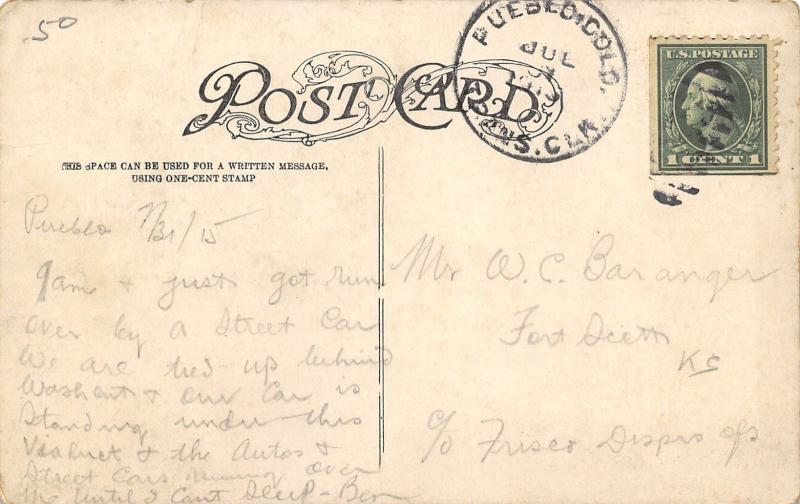 50
POST CARD
THIS SPACE CAN BE USED FOR A WRITTEN MESSAGE,
USING ONE-CENT STAMP
PUEBLO, COLO.
JUL
31
TRANS. CLK.
U.S. POSTAGE
1 CENT 1
Pueblo 7/31/15
9am & just got run
over by a Street Car
We are tied up behind
Washout & our Car is
Standing under this
Viaduct & the Autos &
Street Cars running over
me until I Cant Sleep - Ben
Mr W. C. Baranger
Fort Scott
KS
c/o Frisco Disprs ofs